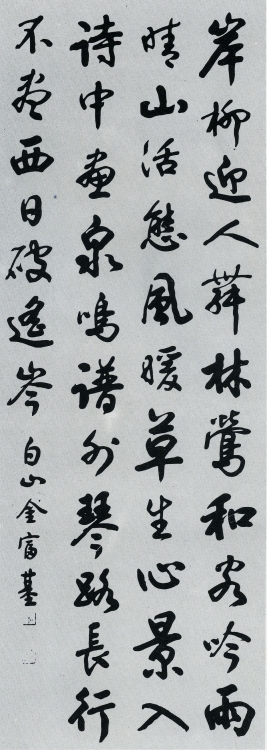 岸柳迎人舞林鶯和客吟雨
晴山活態風暖草生心景入
詩中畫泉鳴譜外琴路長行
不盡西日破遙岑 白山金富基